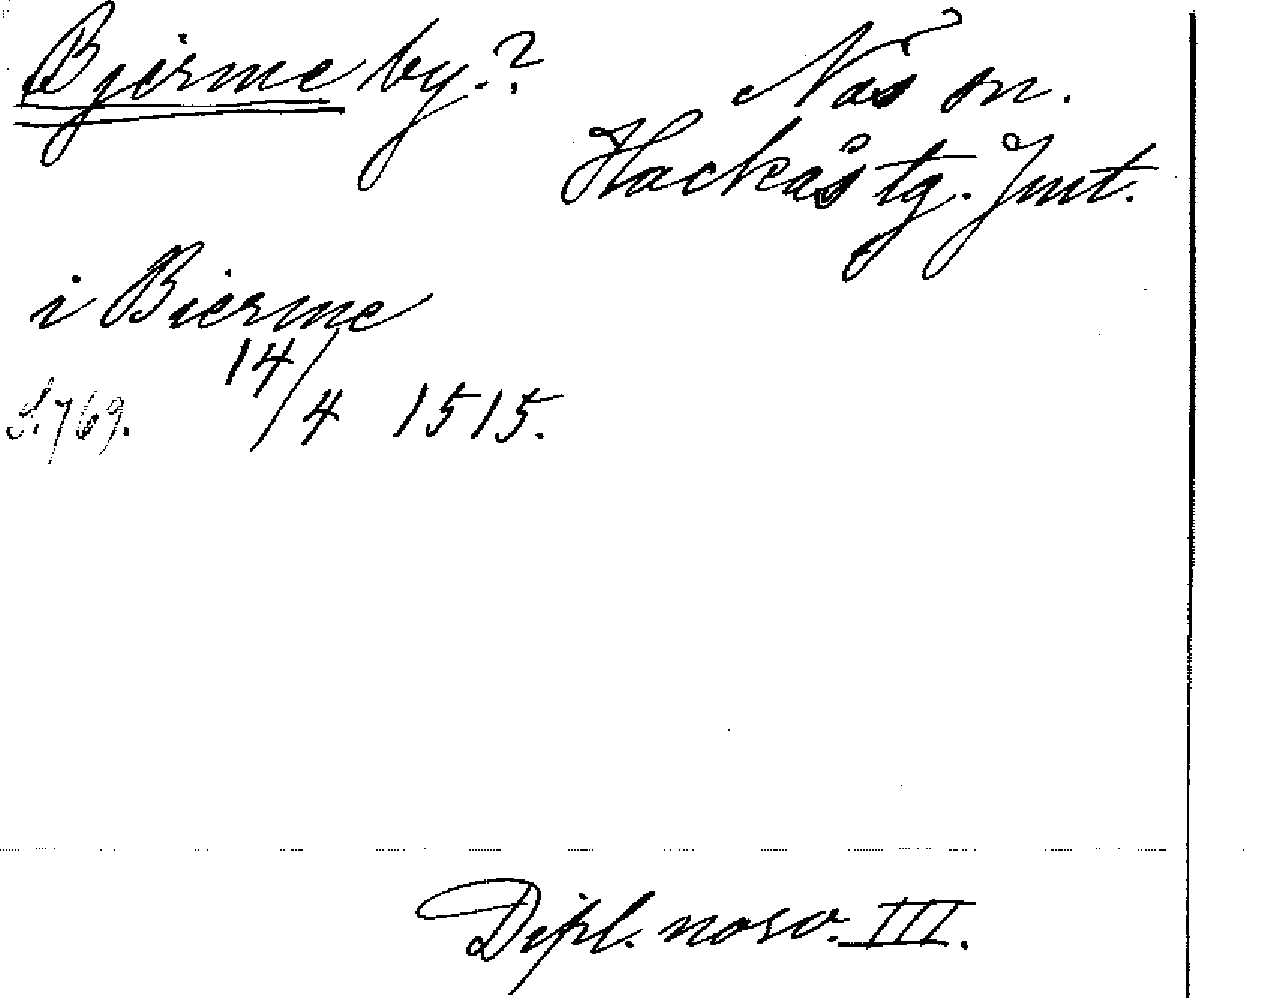 Bjerme by.?
Näs sn.
Hackås tg. Jmt.
i Bierme
S. 769. 14/4 1515.
Dipl. norv. III.